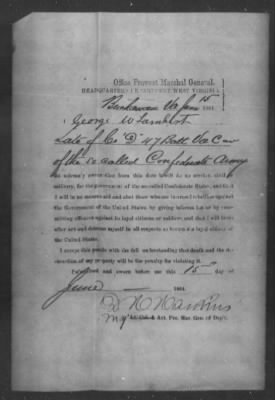 Office Provost Marshal General,
HEADQUARTERS DEPARTMENT WEST VIRGINIA,
Va June 15 1864.
George W Lambert
Late of Co "D" 47 Batt Va Cav
of the so called Confederate Army
do solemnly swear that from this date forth do no service, civil or
military, for the government of the so-called Confederate States, and that
I will in no manner aid and abet those who are in rebellion against
the Government of the United States, by giving information or by com-
mitting offences against its loyal citizens or soldiers; and that I will here-
after act and demean myself in all respects as becomes a loyal citizen of
the United States.
I accept this parole with the full understanding that death and the de-
struction of my property will be the penalty for violating it.
Subscribed and sworn before me this 15 day of
June 1864.
Hawkins
Maj
& Act. Pro. Mar. Gen. of Dep't.